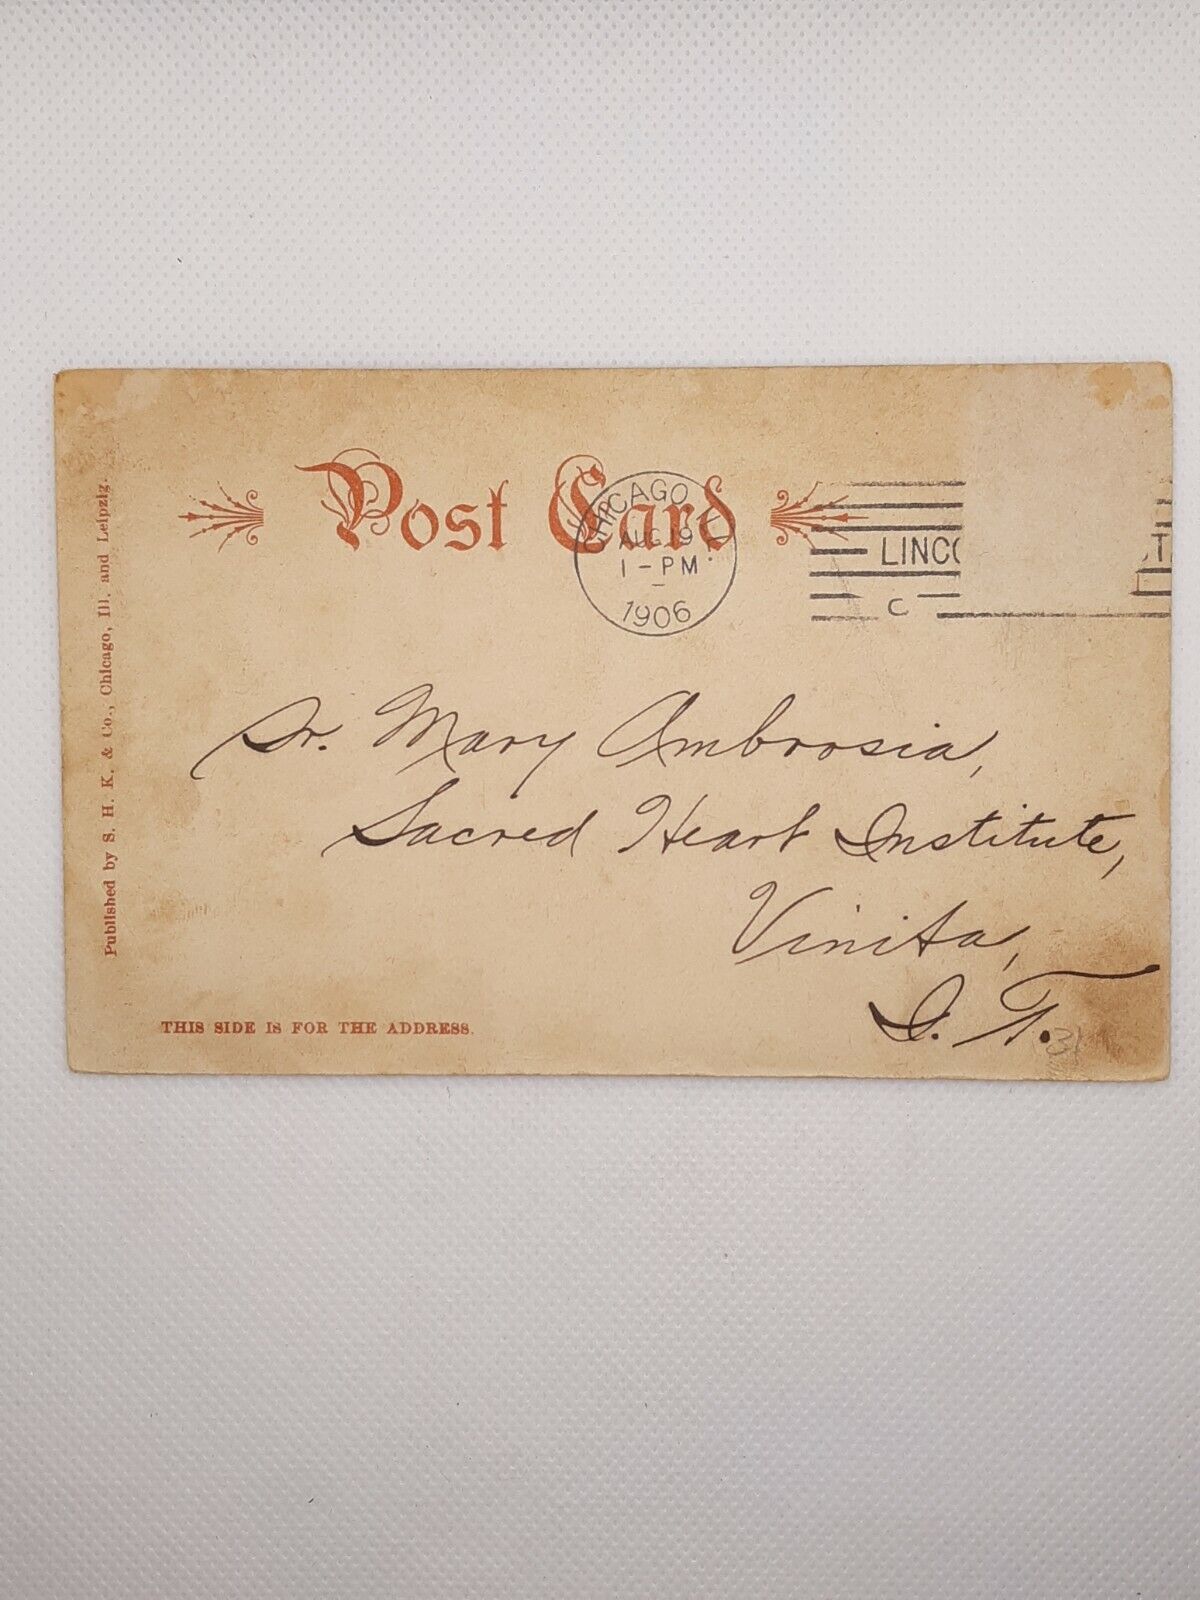 Post Card
CHICAGO ILL.
AUG 19
1-PM
1906
LINC
ST
C
Sr. Mary Ambrosia,
Sacred Heart Institute,
Vinita,
I. T.
THIS SIDE IS FOR THE ADDRESS.
Published by S. H. K. & Co., Chicago, Ill. and Leipzig.